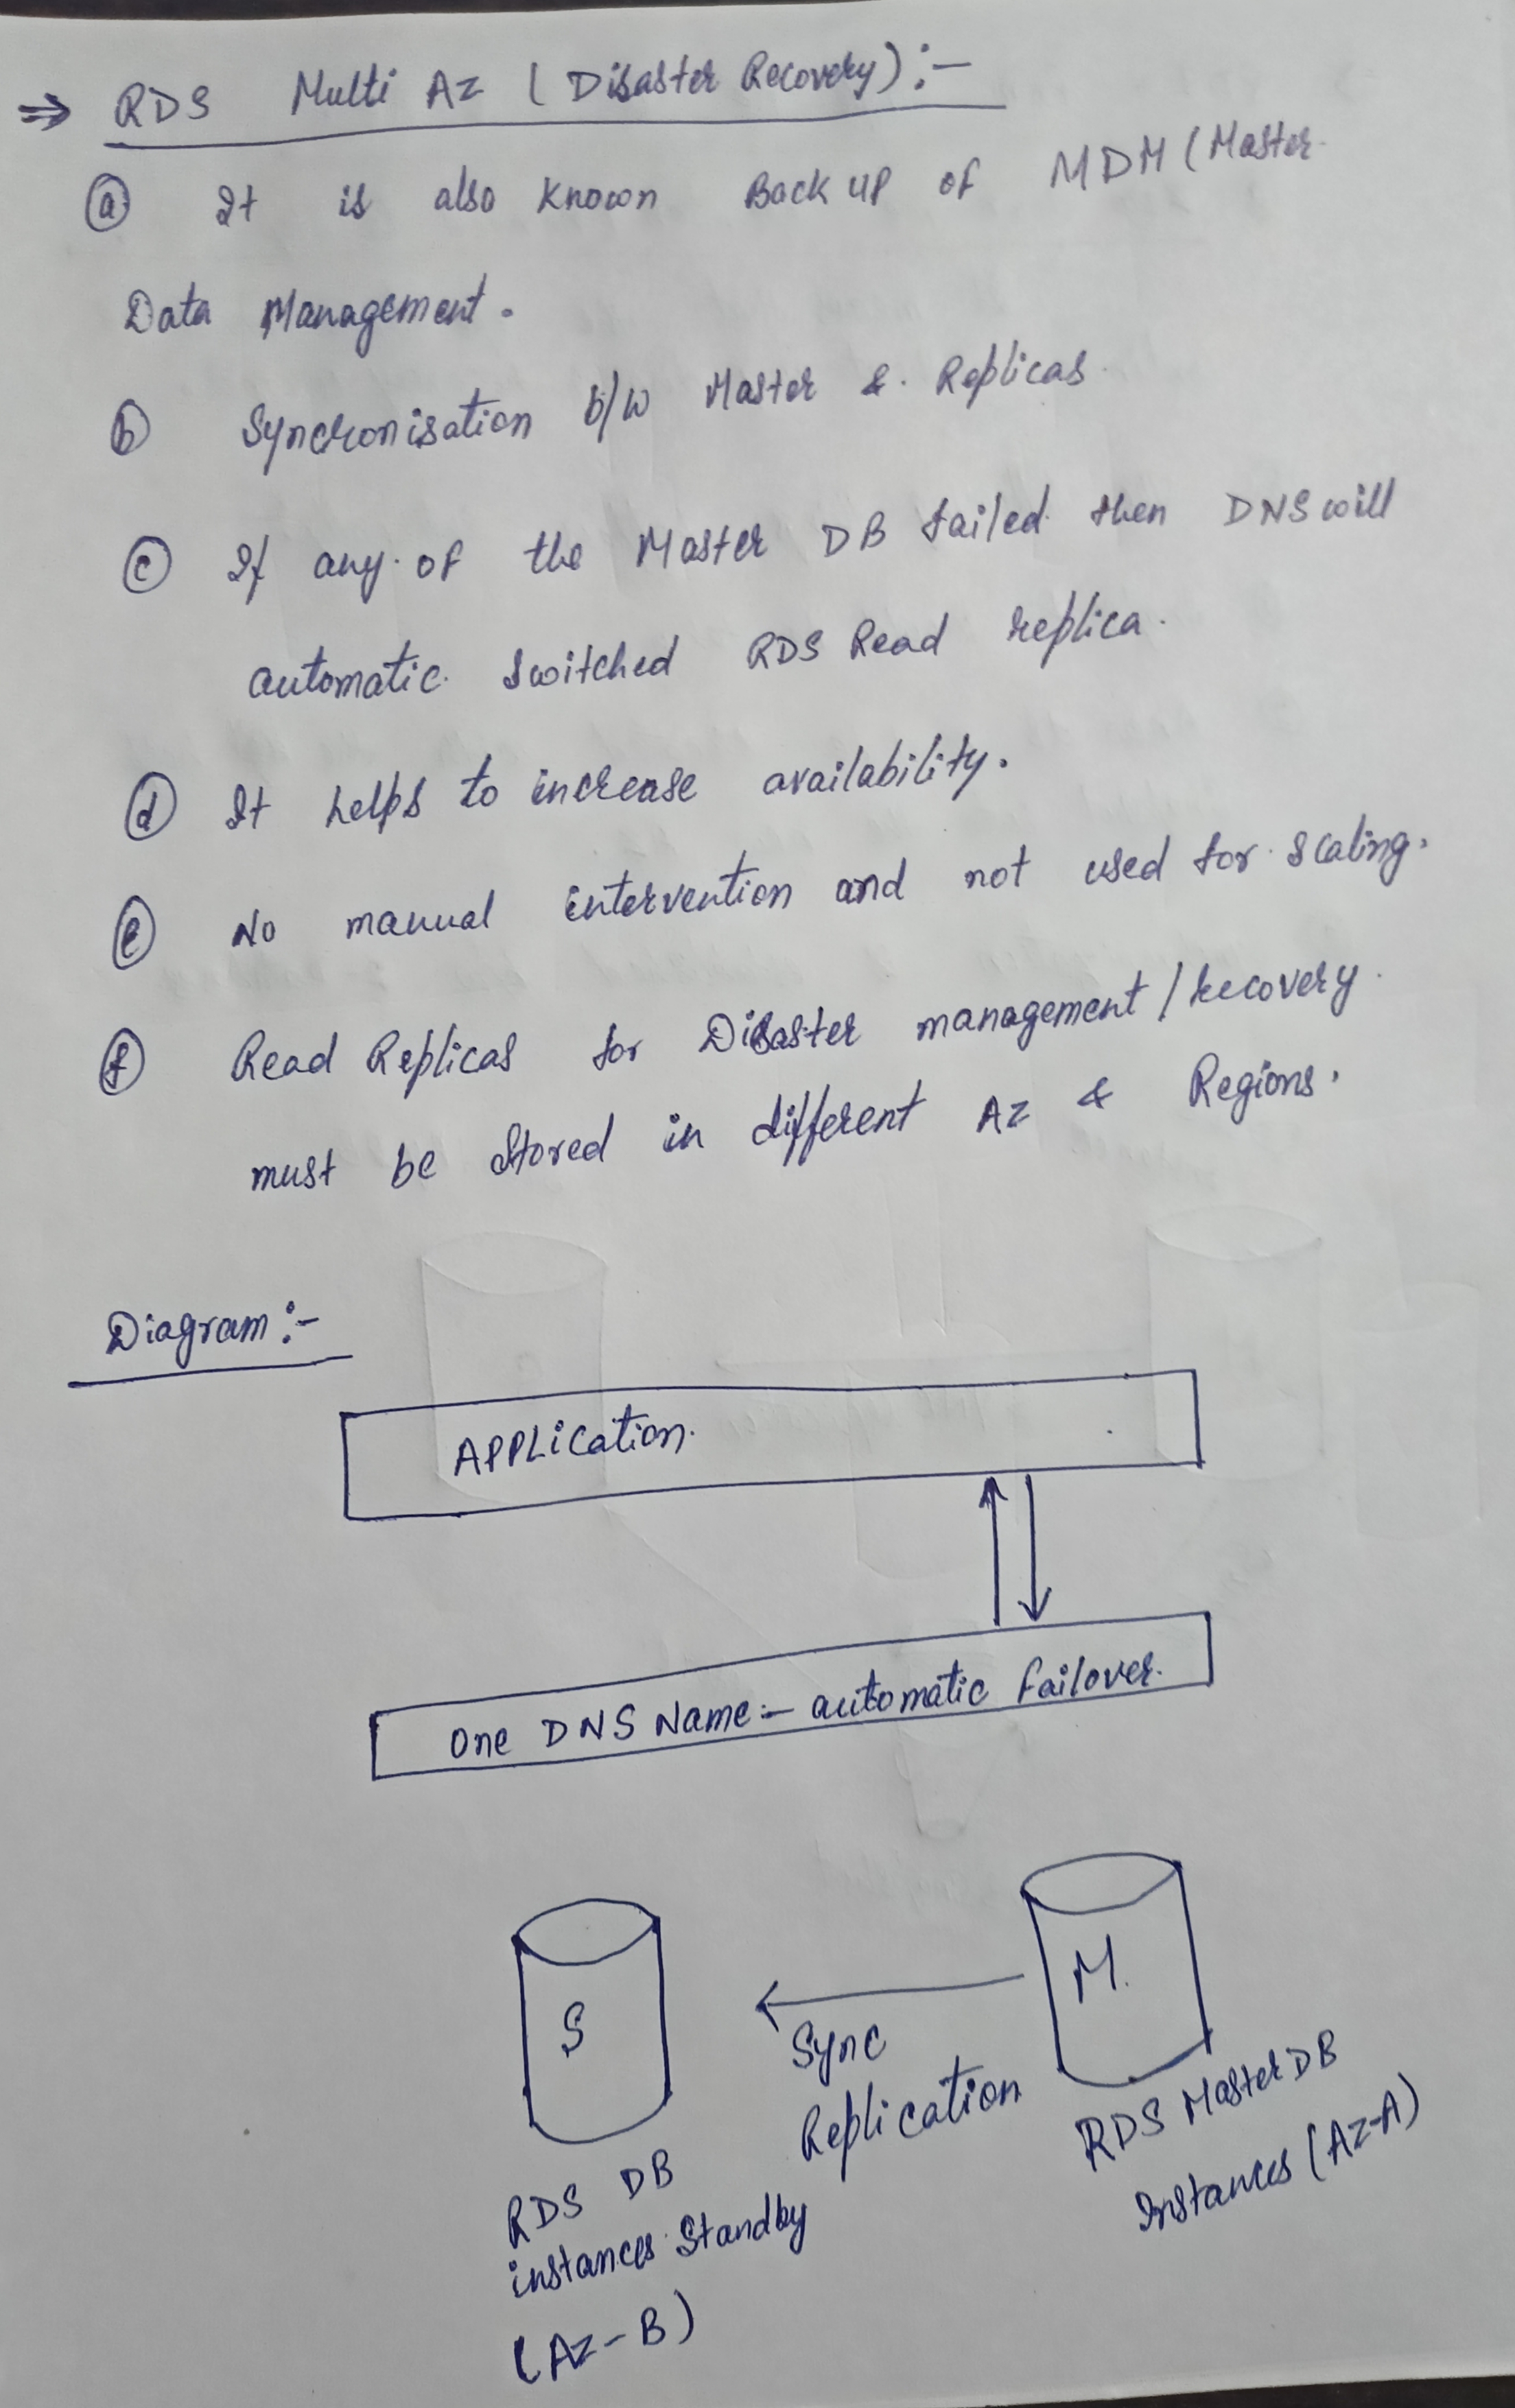 ⇒ RDS Multi AZ ( Disaster Recovery) :-
(a) It is also known Back up of MDM (Master
Data Management.
(b) Syncronisation b/w Master & Replicas.
(c) If any of the Master DB failed then DNS will
automatic switched RDS Read replica.
(d) It helps to increase availability.
(e) No manual intervention and not used for scaling.
(f) Read Replicas for Disaster management / recovery.
must be stored in different AZ & Regions.
Diagram :-
APPLication.
One DNS Name :- automatic failover.
S
M.
Sync
Replication
RDS Master DB
Instances (AZ-A)
RDS DB
instances Standby
(AZ-B)